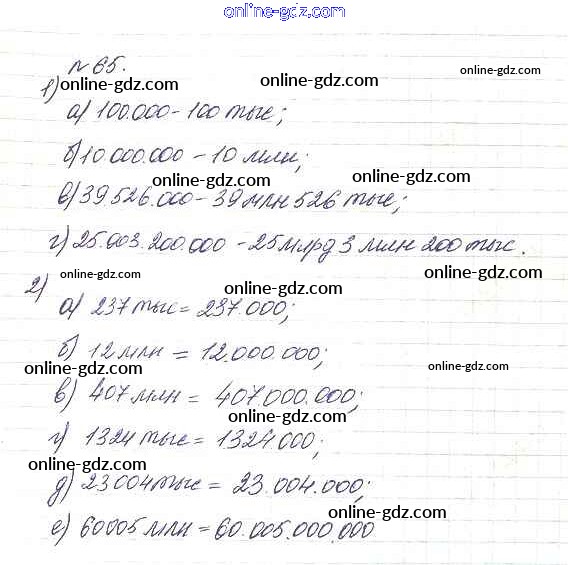 online-gdz.com
№65.
online-gdz.com online-gdz.com online-gdz.com
1)
а) 100.000 - 100 тыс;
online-gdz.com online-gdz.com
б) 10 000.000 - 10 млн;
online-gdz.com online-gdz.com
в) 39 526.000 - 39 млн 526 тыс;
online-gdz.com
г) 25.003.200.000 - 25 млрд 3 млн 200 тыс.
online-gdz.com online-gdz.com online-gdz.com
2)
а) 237 тыс = 237.000;
online-gdz.com
б) 12 млн = 12.000.000;
online-gdz.com online-gdz.com
в) 407 млн = 407 000.000;
online-gdz.com
г) 1324 тыс = 1324 000;
online-gdz.com online-gdz.com
д) 23 004 тыс = 23.004.000;
online-gdz.com
е) 60005 млн = 60.005.000.000